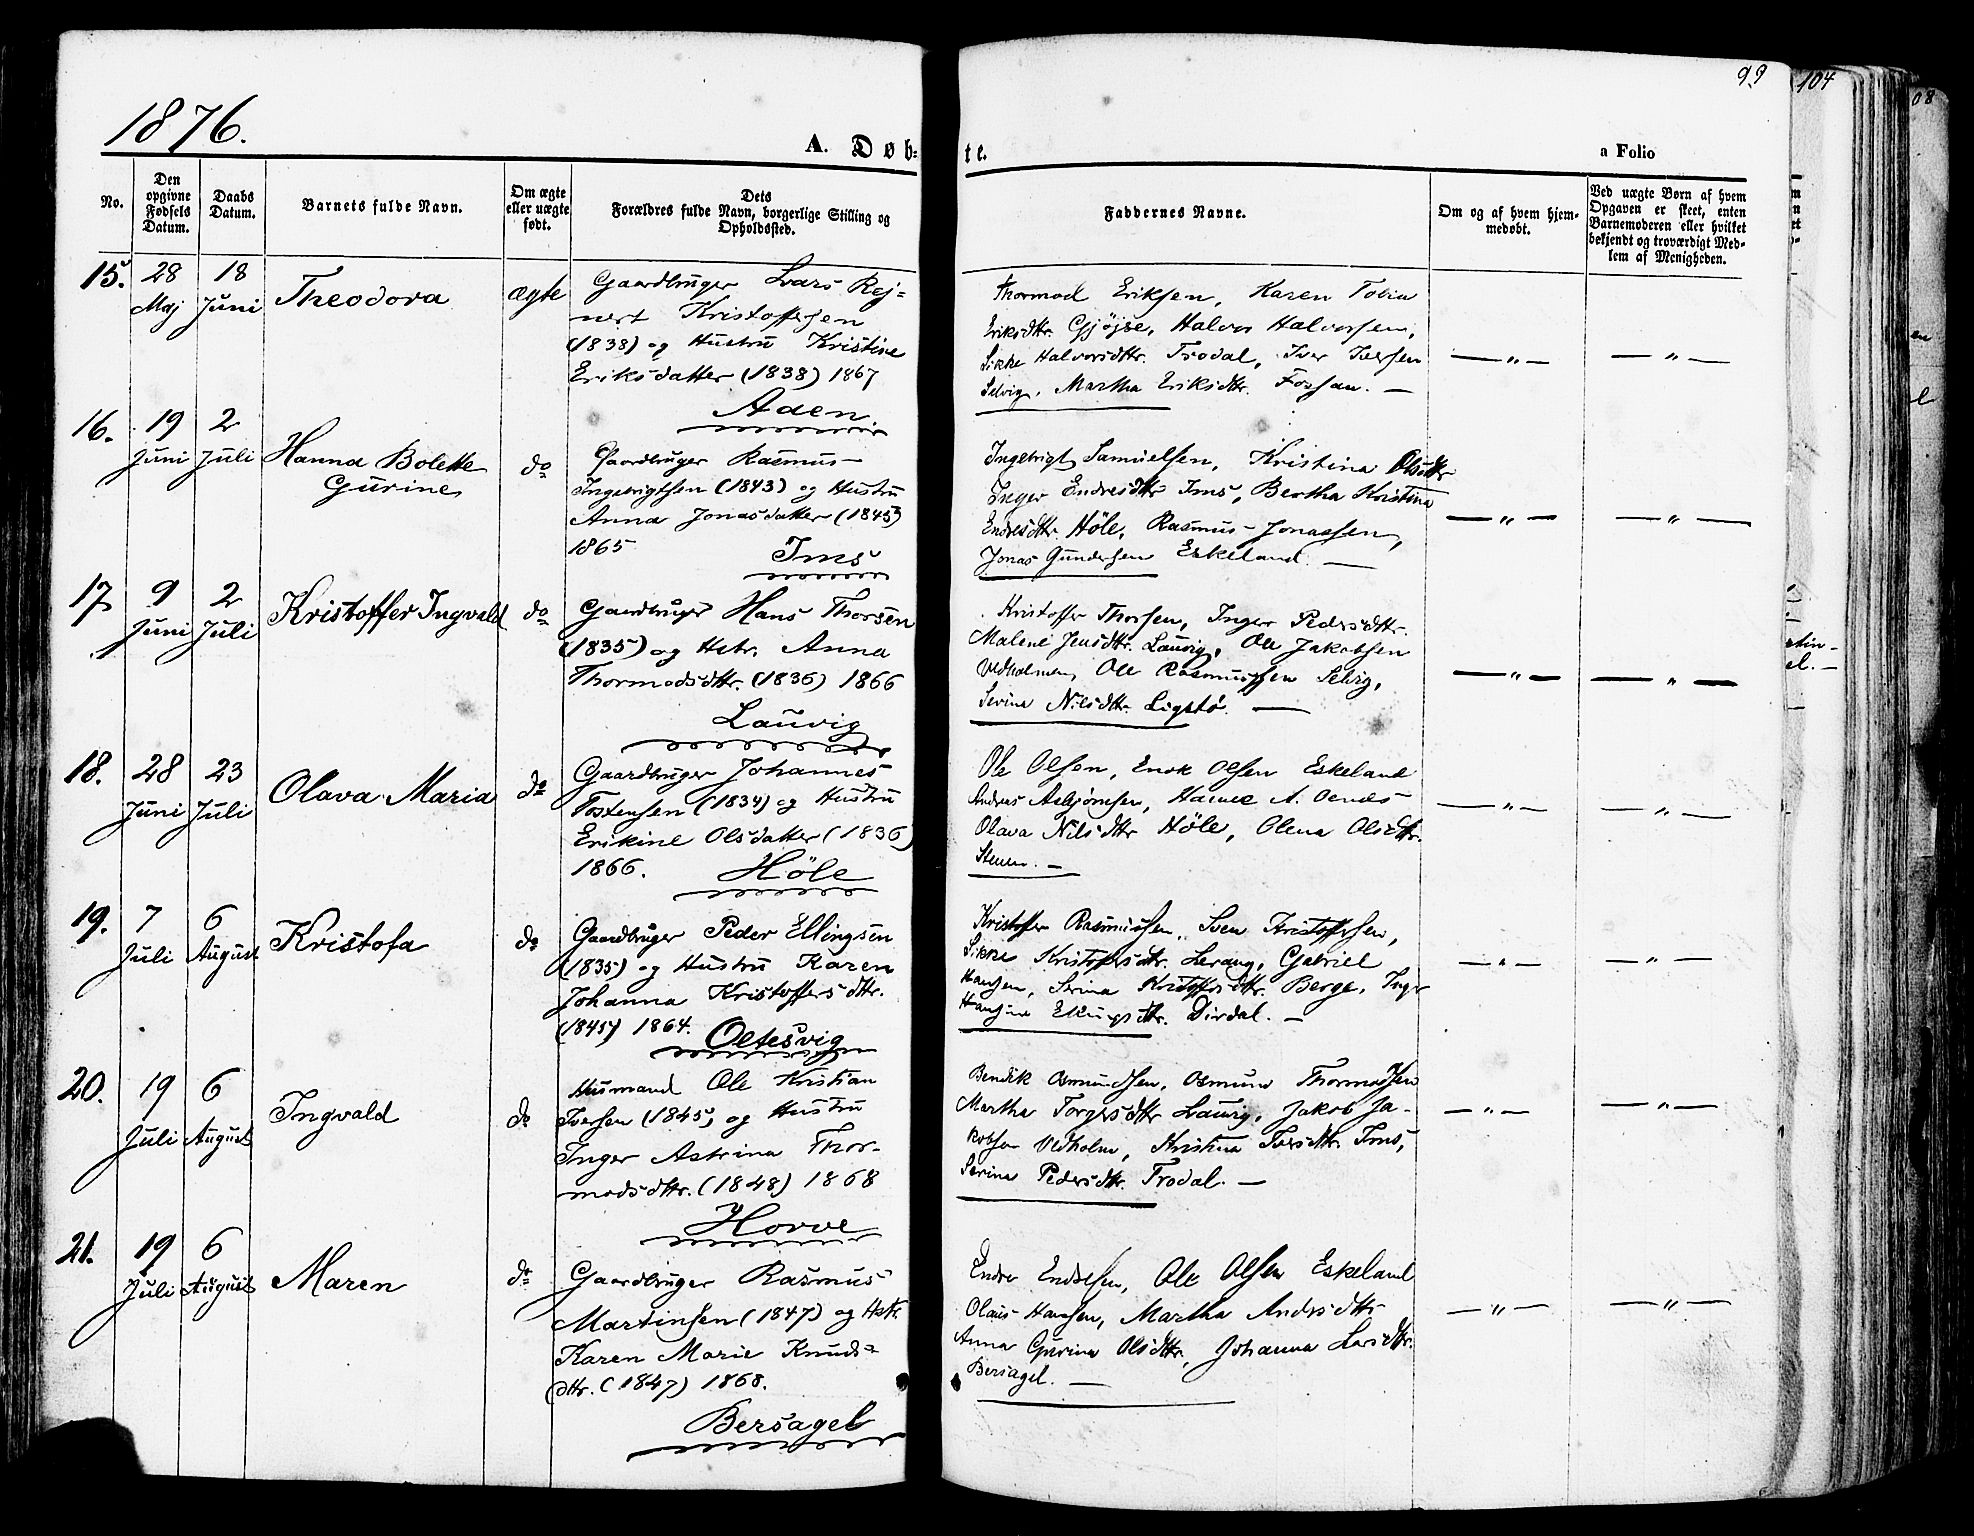 99
104
08
1876.
A. Døb-
te.
a Folio
No.
Den opgivne Fødsels Datum.
Daabs Datum.
Barnets fulde Navn.
Om ægte eller uægte født.
Dets Forældres fulde Navn, borgerlige Stilling og Opholdssted.
Faddernes Navne.
Om og af hvem hjemmedøbt.
Ved uægte Børn af hvem Opgaven er skeet, enten Barnemoderen eller hvilket bekjendt og troværdigt Medlem af Menigheden.
15. 28 Maj 18 Juni Theodora ægte
Gaardbruger Lars Rej=
nert Kristoffersen
(1838) og Hustru Kristine
Eriksdatter (1838) 1867
Aden
Thormod Eriksen, Karen Tobia
Eriksdttr. Gjøjse, Halvor Halvorsen,
Sikke Halvorsdttr. Trodal, Iver Iversen
Selvig, Martha Eriksdttr. Fossan. —
— " — — " —
16. 19 Juni 2 Juli Hanna Bolette
Gurine do
Gaardbruger Rasmus
Ingebrigtsen (1843) og Hustru
Anna Jonasdatter (1845)
1865
Ims
Ingebrigt Samuelsen, Kristina Olsdttr
Inger Endresdttr Ims, Bertha Kristina
Endresdttr. Höle, Rasmus Jonassen,
Jonas Gundersen Eskeland. —
— " — — " —
17 9 Juni 2 Juli Kristoffer Ingvald do
Gaardbruger Hans Thorsen
(1835) og Hstr. Anna
Thormodsdttr. (1836) 1866
Lauvig
Kristoffer Thorsen, Inger Pedersdttr.
Malene Jensdttr. Lauvig, Ole Jakobsen
Vedholmen, Ole Rasmussen Selvig,
Serina Nilsdttr. Ligstø. —
— " — — " —
18. 28 Juni 23 Juli Olava Maria do
Gaardbruger Johannes
Tostensen (1834) og Hustru
Erikine Olsdatter (1836)
1866.
Höle
Ole Olsen, Enok Olsen Eskeland
Andreas Asbjørnsen,
Olava Nilsdttr Höle, Olena Olsdttr.
— " — — " —
19. 7 Juli 6 August Kristofa do
Gaardbruger Peder Ellingsen
(1835) og Hustru Karen
Johanna Kristoffersdttr.
(1845) 1864.
Oltesvig
Kristoffer Rasmussen, Sven Kristoffersen,
Sikke Kristoffersdttr. Lerang, Gabriel
Hansen, Serina Kristoffersdttr. Berge, Inger
Dirdal. —
— " — — " —
20. 19 Juli 6 August Ingvald do
Husmand Ole Kristian
Iversen (1845) og Hustru
Inger Astrina Thor-
modsdttr. (1848) 1868
Horve
Bendik Osmundsen, Osmund Thormodsen
Martha Torgersdttr Lauvig, Jakob Ja-
kobsen Vedholm, Kristina Iversdttr. Ims,
Serina Pedersdttr. Trodal. —
— " — — " —
21. 19 Juli 6 August Maren do
Gaardbruger Rasmus
Martinsen (1847) og Hstr.
Karen Marie Knuds=
dttr. (1847) 1868.
Bersagel
Endre Endresen, Ole Olsen Eskeland
Olaus Hansen, Martha Andersdttr
Anna Gurina Olsdttr, Johanna Larsdttr.
Bersagel. —
— " — — " —